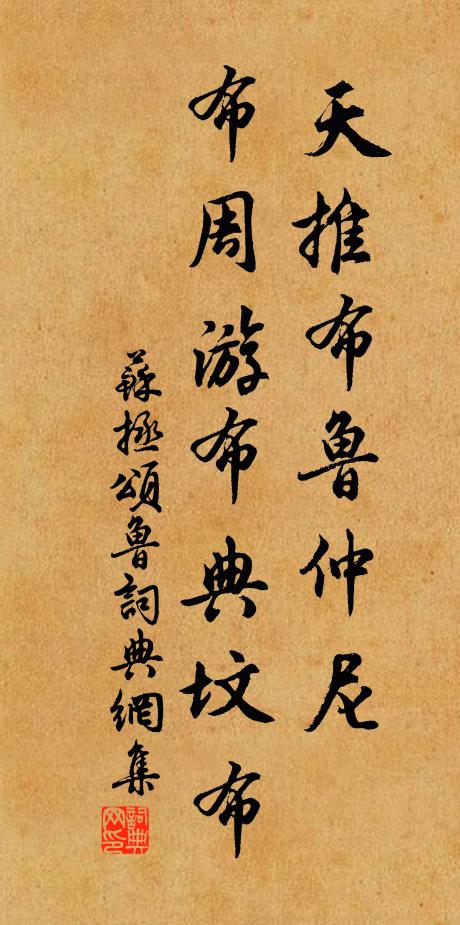 天推布魯仲尼
布周游布典坟布
蘇拯頌魯詞典網集
詞典
网印